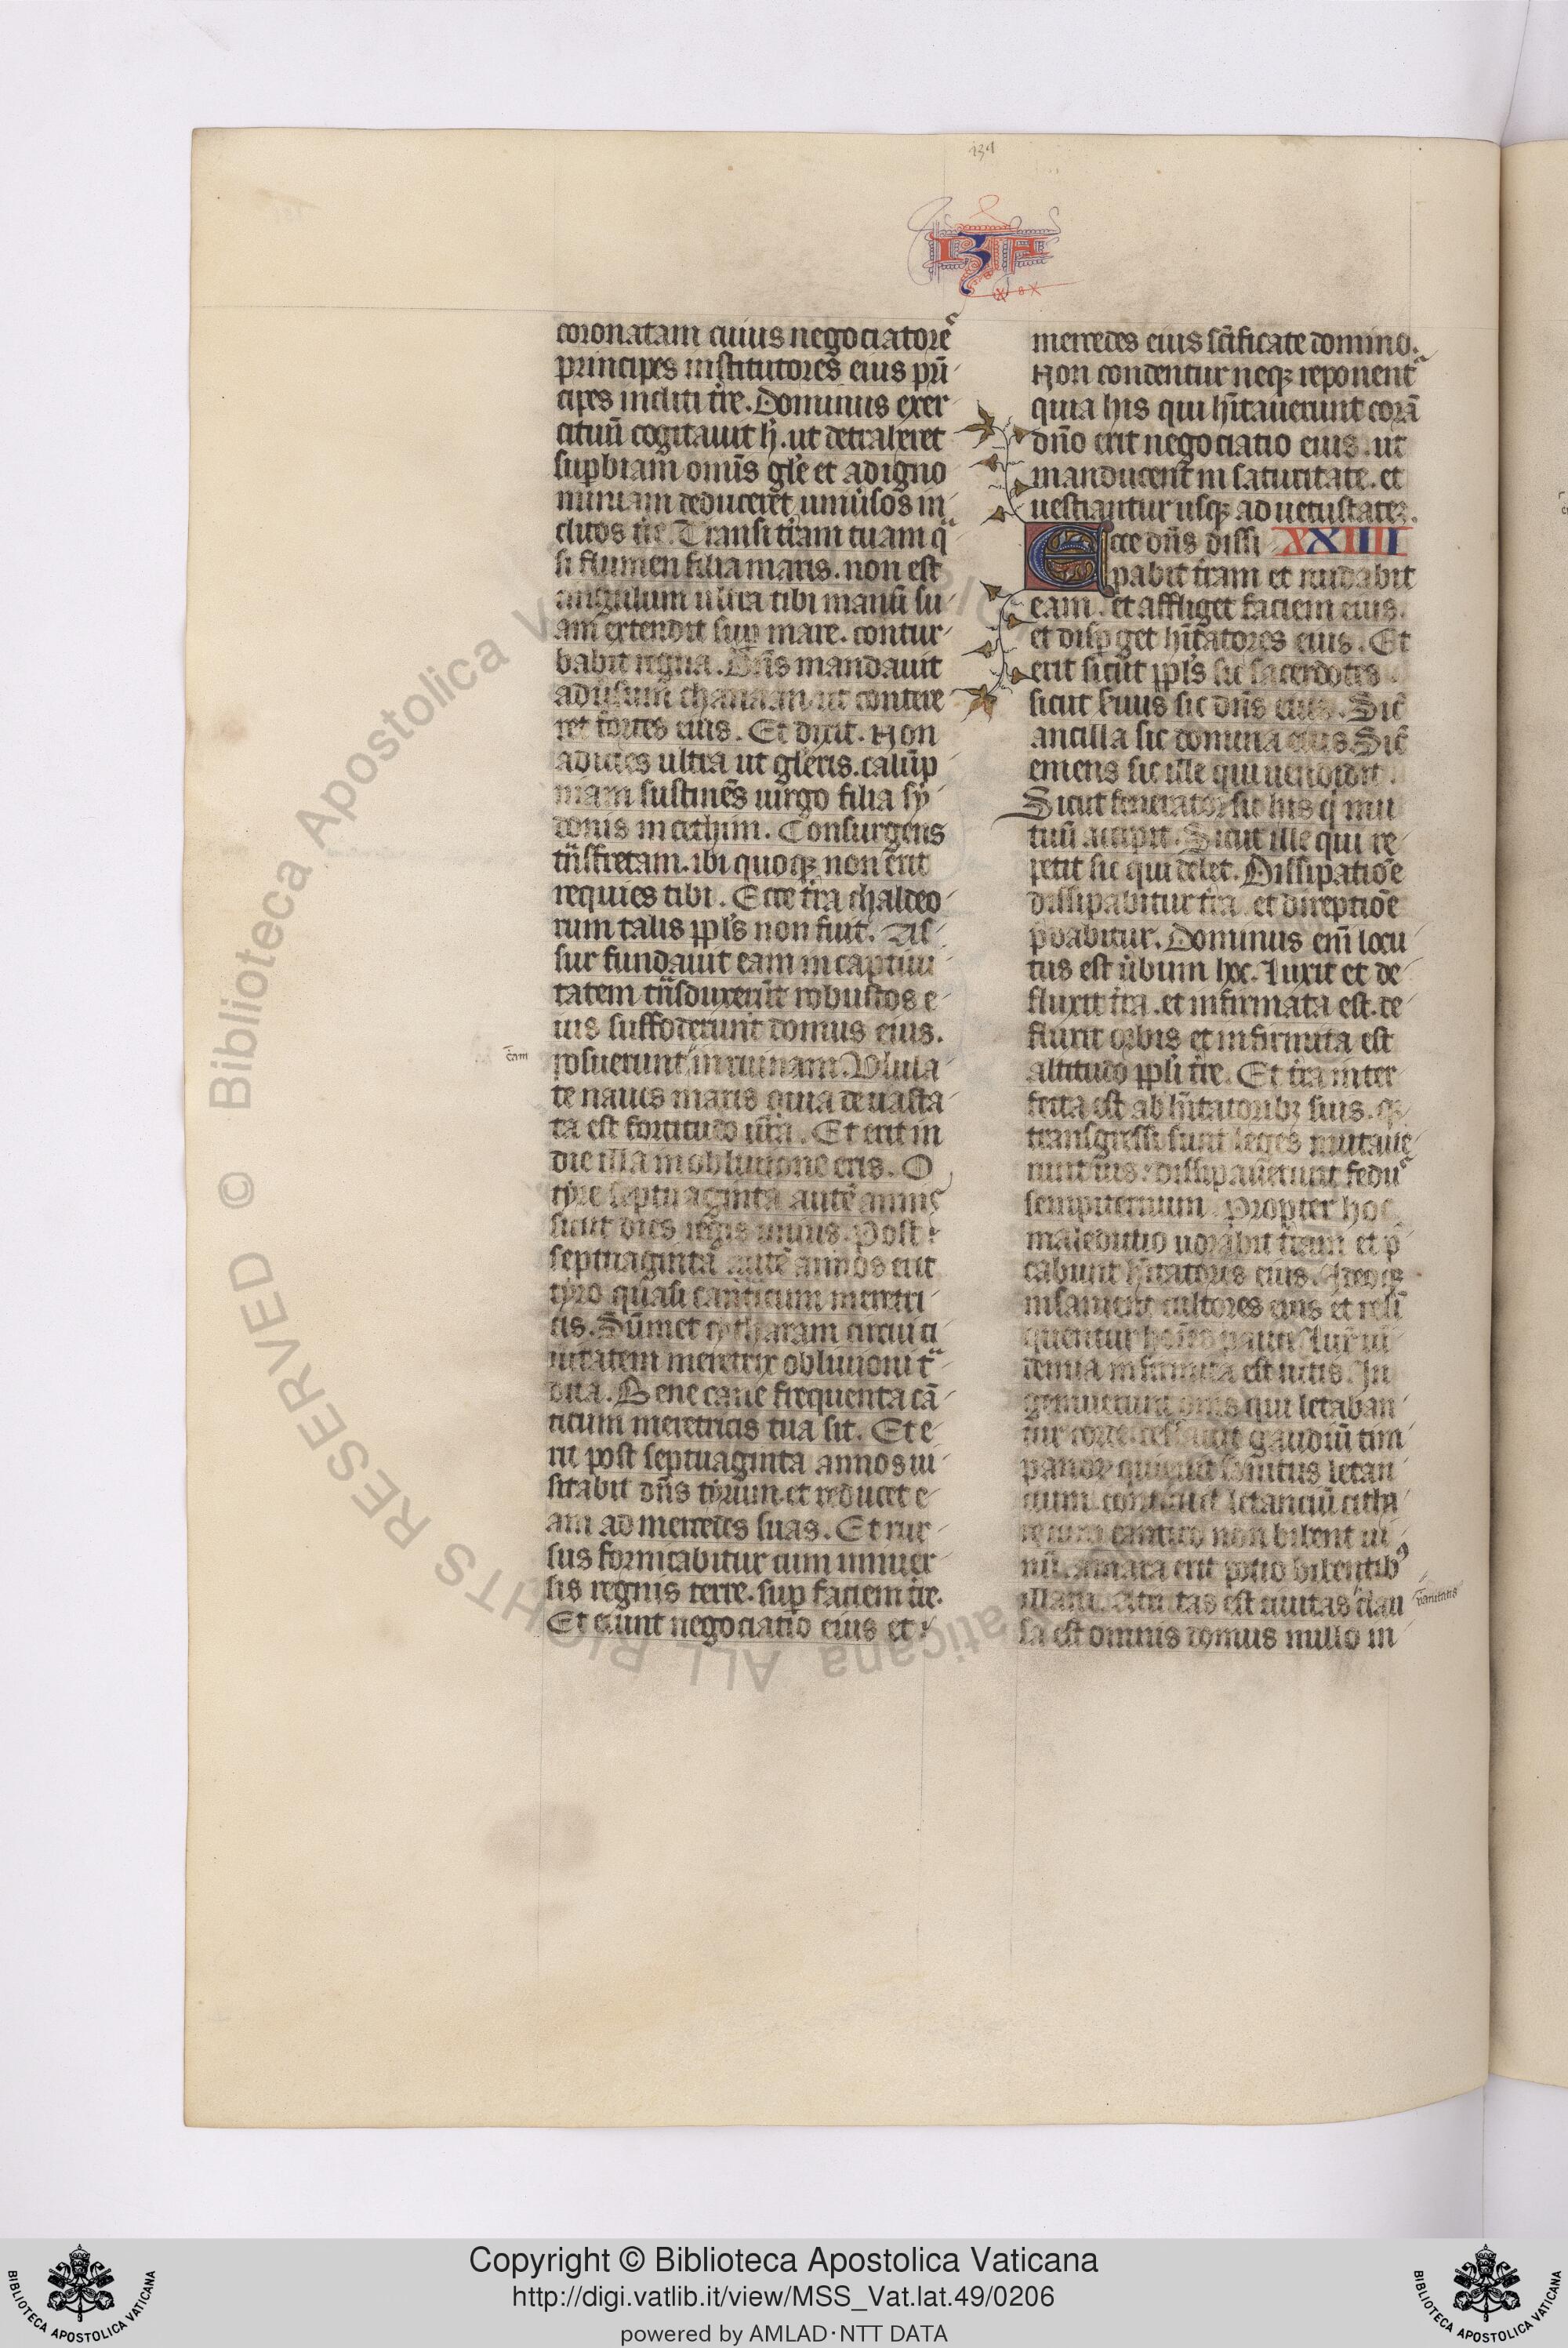 134
ISA
coronatam cuius negociatoreᷤ
principes institutores eius prī
cipes incliti t̄re. Dominus exer
cituū cogitauit h̄. ut detraheret
supbiam omīs gl̄e et ad igno
miniam deduceret uniūsos in
clitos t̄re. Transi t̄ram tuam qᷓ
si flumen filia maris. non est
cingulum ultra tibi manū su
am extendit sup mare. contur
babit regna. Dn̄s mandauit
aduīsum chanaan ut contere
ret fortes eius. Et dixit. Non
adicies ultra ut gl̄eris. calūp
niam sustinēs uirgo filia sy
donis in cethim. Consurgens
tn̄sfretam. ibi quoqꝫ non erit
requies tibi. Ecce t̄ra chaldeo
rum talis ppl̄s non fuit. As
sur fundauit eam in captiui
tatem tn̄sduxerūt robustos e
ius suffoderunt domus eius.
posuerunt in ruinam. Ulula
te naues maris quia deuasta
ta est fortitudo ur̄a. Et erit in
die illa in obliuione eris. O
tyre septuaginta autē annis
sicut dies regis unius. Post
septuaginta autē annos erit
tyro quasi canticum meretri
cis. Sūmet cytharam circui ci
uitatem meretrix obliuioni tᷓ
dita. Bene cane frequenta cā
ticum meretricis tua sit. Et e
rit post septuaginta annos ui
sitabit dn̄s tyrum. et reducet e
am ad mercedes suas. Et rur
sus fornicabitur cum uniuer
sis regnis terre. sup faciem t̄re.
Et erunt negociatio eius et
c̄am
mercedes eius sc̄ificate domino.
Non condentur neqꝫ reponent᷑
quia his qui hīt̄auerunt corā
dn̄o erit negociatio eius. ut
manducent in saturitate. et
uestiantur usqꝫ ad uetustateꝫ.
Ecce dn̄s dissi XXIIII
pabit t̄ram et nudabit
eam. et affliget faciem eius.
et dispget hīt̄atores eius. Et
erit sicut ppl̄s sic sacerdotes
sicut s̄uus sic dn̄s eius. Sic̄
ancilla sic domina eius. Sic̄
emens sic ille qui uendidit.
Sicut fenerator sic his q̇ mu
tuū accipit. Sicut ille qui re
petit sic qui debet. Dissipatiōe
dissipabitur t̄ra. et direptiōe
p̄dabitur. Dominus em̄ locu
tus est ūbum hoc. Luxit et de
fluxit t̄ra. et infirmata est. de
fluxit orbis et infirmata est
altitudo ppl̄i t̄re. Et t̄ra inter
fecta est ab hīt̄atoribꝫ suis. qꝫ
transgressi sunt leges mutaue
runt ius. dissipauerunt feduᷤ
sempiternum. Propter hoc
maledictio uorabit t̄ram et p̄
cabunt hīt̄atores eius. Ideoqꝫ
insanient cultores eius et reli
quentur hoīes pauci. Lux̄ ui
demia infirmata est uitis. In
gemuerunt omīs qui letaban
tur corde. cessauit gaudiū tim
panoꝝ quieuit sonitus letan
tium. conticuit letanciū citha
re cum cantico non bibent ui
nū. amara erit potio bibentibꝰ
illam. Attritas est ciuitas clau
sa est omnis domus nullo in
uanitatis
© Biblioteca Apostolica Vaticana ALL RIGHTS RESERVED
Copyright © Biblioteca Apostolica Vaticana
http://digi.vatlib.it/view/MSS_Vat.lat.49/0206
powered by AMLAD·NTT DATA
BIBLIOTECA APOSTOLICA VATICANA
BIBLIOTECA APOSTOLICA VATICANA